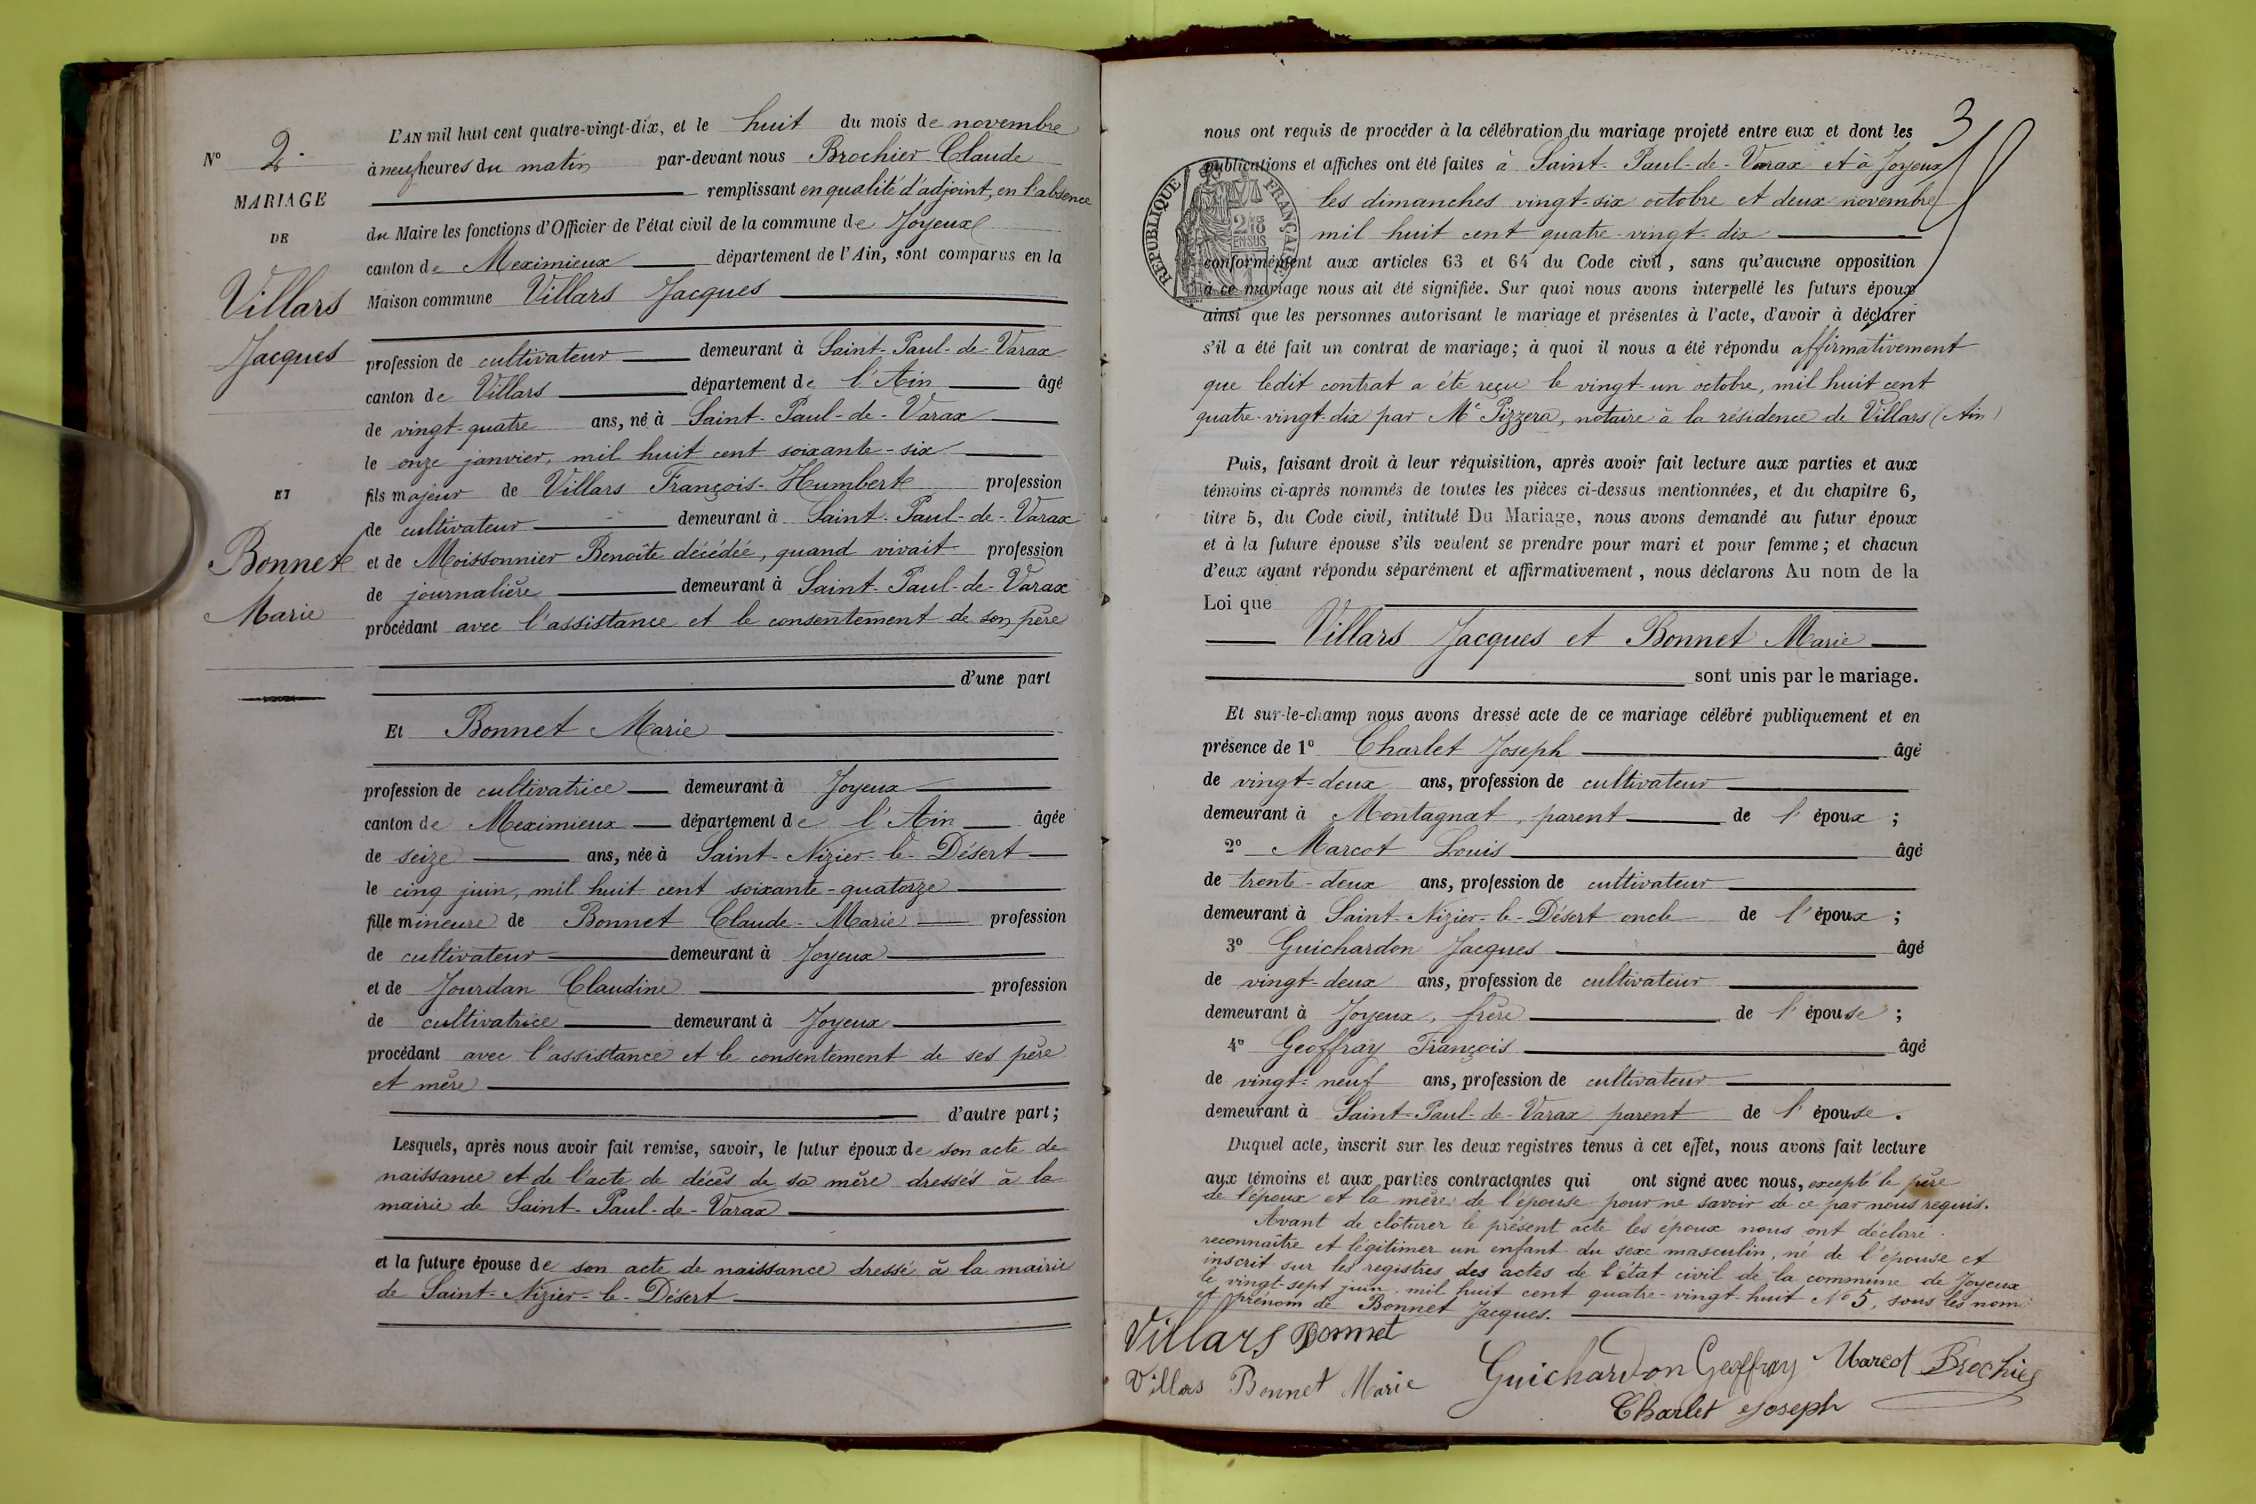 N° 2.
MARIAGE
DE
Villars
Jacques
ET
Bonnet
Marie
L'AN mil huit cent quatre-vingt-dix, et le huit du mois de novembre
à neuf heures du matin par-devant nous Brochier Claude
remplissant en qualité d'adjoint, en l'absence
du Maire les fonctions d'Officier de l'état civil de la commune de Joyeux
canton de Meximieux département de l'Ain, sont comparus en la
Maison commune Villars Jacques
profession de cultivateur demeurant à Saint-Paul-de-Varax
canton de Villars département de l'Ain âgé
de vingt-quatre ans, né à Saint-Paul-de-Varax
le onze janvier, mil huit cent soixante-six
fils majeur de Villars François-Humbert profession
de cultivateur demeurant à Saint-Paul-de-Varax
et de Moissonnier Benoîte décédée, quand vivait profession
de journalière demeurant à Saint-Paul-de-Varax
procédant avec l'assistance et le consentement de son père
d'une part
Et Bonnet Marie
profession de cultivatrice demeurant à Joyeux
canton de Meximieux département de l'Ain âgée
de seize ans, née à Saint-Nizier-le-Désert
le cinq juin, mil huit cent soixante-quatorze
fille mineure de Bonnet Claude-Marie profession
de cultivateur demeurant à Joyeux
et de Jourdan Claudine profession
de cultivatrice demeurant à Joyeux
procédant avec l'assistance et le consentement de ses père
et mère
d'autre part;
Lesquels, après nous avoir fait remise, savoir, le futur époux de son acte de
naissance et de l'acte de décès de sa mère dressés à la
mairie de Saint-Paul-de-Varax
et la future épouse de son acte de naissance dressé à la mairie
de Saint-Nizier-le-Désert
3
nous ont requis de procéder à la célébration du mariage projeté entre eux et dont les
publications et affiches ont été faites à Saint-Paul-de-Varax et à Joyeux
les dimanches vingt-six octobre et deux novembre
mil huit cent quatre-vingt-dix
RÉPUBLIQUE FRANÇAISE
2/10 EN SUS
conformément aux articles 63 et 64 du Code civil, sans qu'aucune opposition
à ce mariage nous ait été signifiée. Sur quoi nous avons interpellé les futurs époux
ainsi que les personnes autorisant le mariage et présentes à l'acte, d'avoir à déclarer
s'il a été fait un contrat de mariage; à quoi il nous a été répondu affirmativement
que ledit contrat a été reçu le vingt-un octobre, mil huit cent
quatre-vingt-dix par Me Pizzera, notaire à la résidence de Villars (Ain)
Puis, faisant droit à leur réquisition, après avoir fait lecture aux parties et aux
témoins ci-après nommés de toutes les pièces ci-dessus mentionnées, et du chapitre 6,
titre 5, du Code civil, intitulé Du Mariage, nous avons demandé au futur époux
et à la future épouse s'ils veulent se prendre pour mari et pour femme; et chacun
d'eux ayant répondu séparément et affirmativement, nous déclarons Au nom de la
Loi que
Villars Jacques et Bonnet Marie
sont unis par le mariage.
Et sur-le-champ nous avons dressé acte de ce mariage célébré publiquement et en
présence de 1° Charlet Joseph âgé
de vingt-deux ans, profession de cultivateur
demeurant à Montagnat, parent de l'époux ;
2° Marcot Louis âgé
de trente-deux ans, profession de cultivateur
demeurant à Saint-Nizier-le-Désert oncle de l'époux ;
3° Guichardon Jacques âgé
de vingt-deux ans, profession de cultivateur
demeurant à Joyeux, frère de l'épouse ;
4° Geoffray François âgé
de vingt-neuf ans, profession de cultivateur
demeurant à Saint-Paul-de-Varax parent de l'épouse.
Duquel acte, inscrit sur les deux registres tenus à cet effet, nous avons fait lecture
aux témoins et aux parties contractantes qui ont signé avec nous, excepté le père
de l'époux et la mère de l'épouse pour ne savoir de ce par nous requis.
Avant de clôturer le présent acte les époux nous ont déclaré
reconnaître et légitimer un enfant du sexe masculin, né de l'épouse et
inscrit sur les registres des actes de l'état civil de la commune de Joyeux
le vingt-sept juin mil huit cent quatre-vingt-huit N° 5, sous les nom
et prénom de Bonnet Jacques.
Villars Bonnet
Villars Bonnet Marie Guichardon Geoffray Marcot Brochier
Charlet Joseph